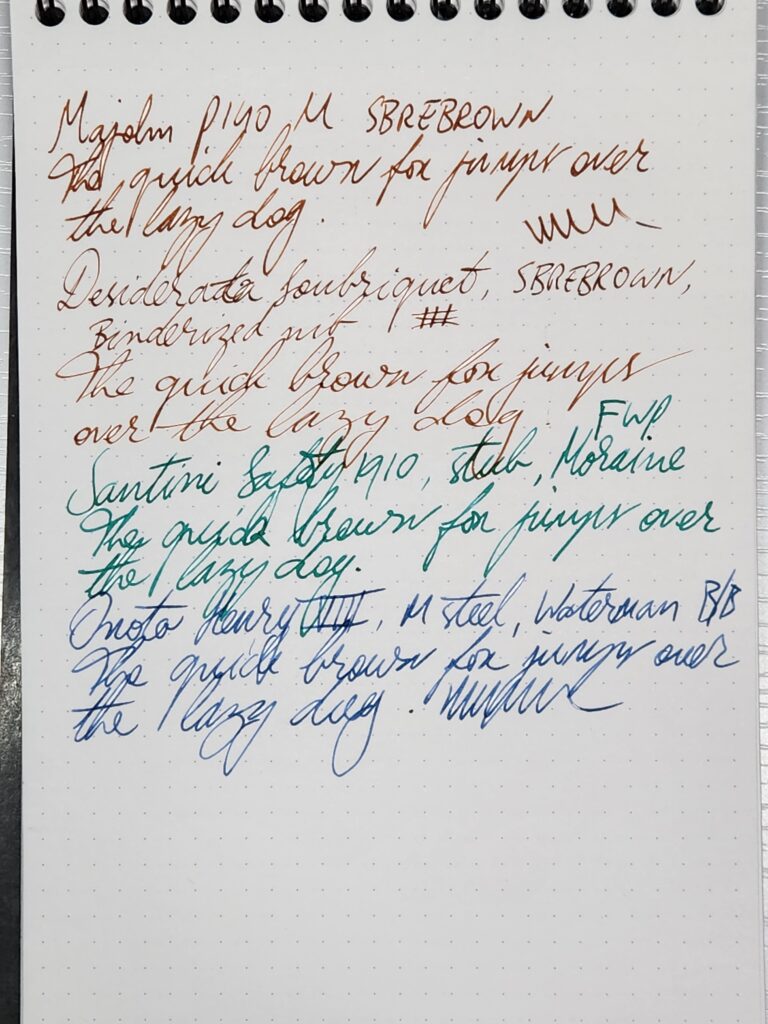 Majohn P140 M SBREBROWN
The quick brown fox jumps over
the lazy dog.
Desiderata Soubriquet, SBREBROWN,
Binderized nib
The quick brown fox jumps
over the lazy dog.
FWP
Santini Safety 1910, stub, Moraine
The quick brown fox jumps over
the lazy dog.
Onoto Henry VIII, M steel, Waterman B/B
The quick brown fox jumps over
the lazy dog.